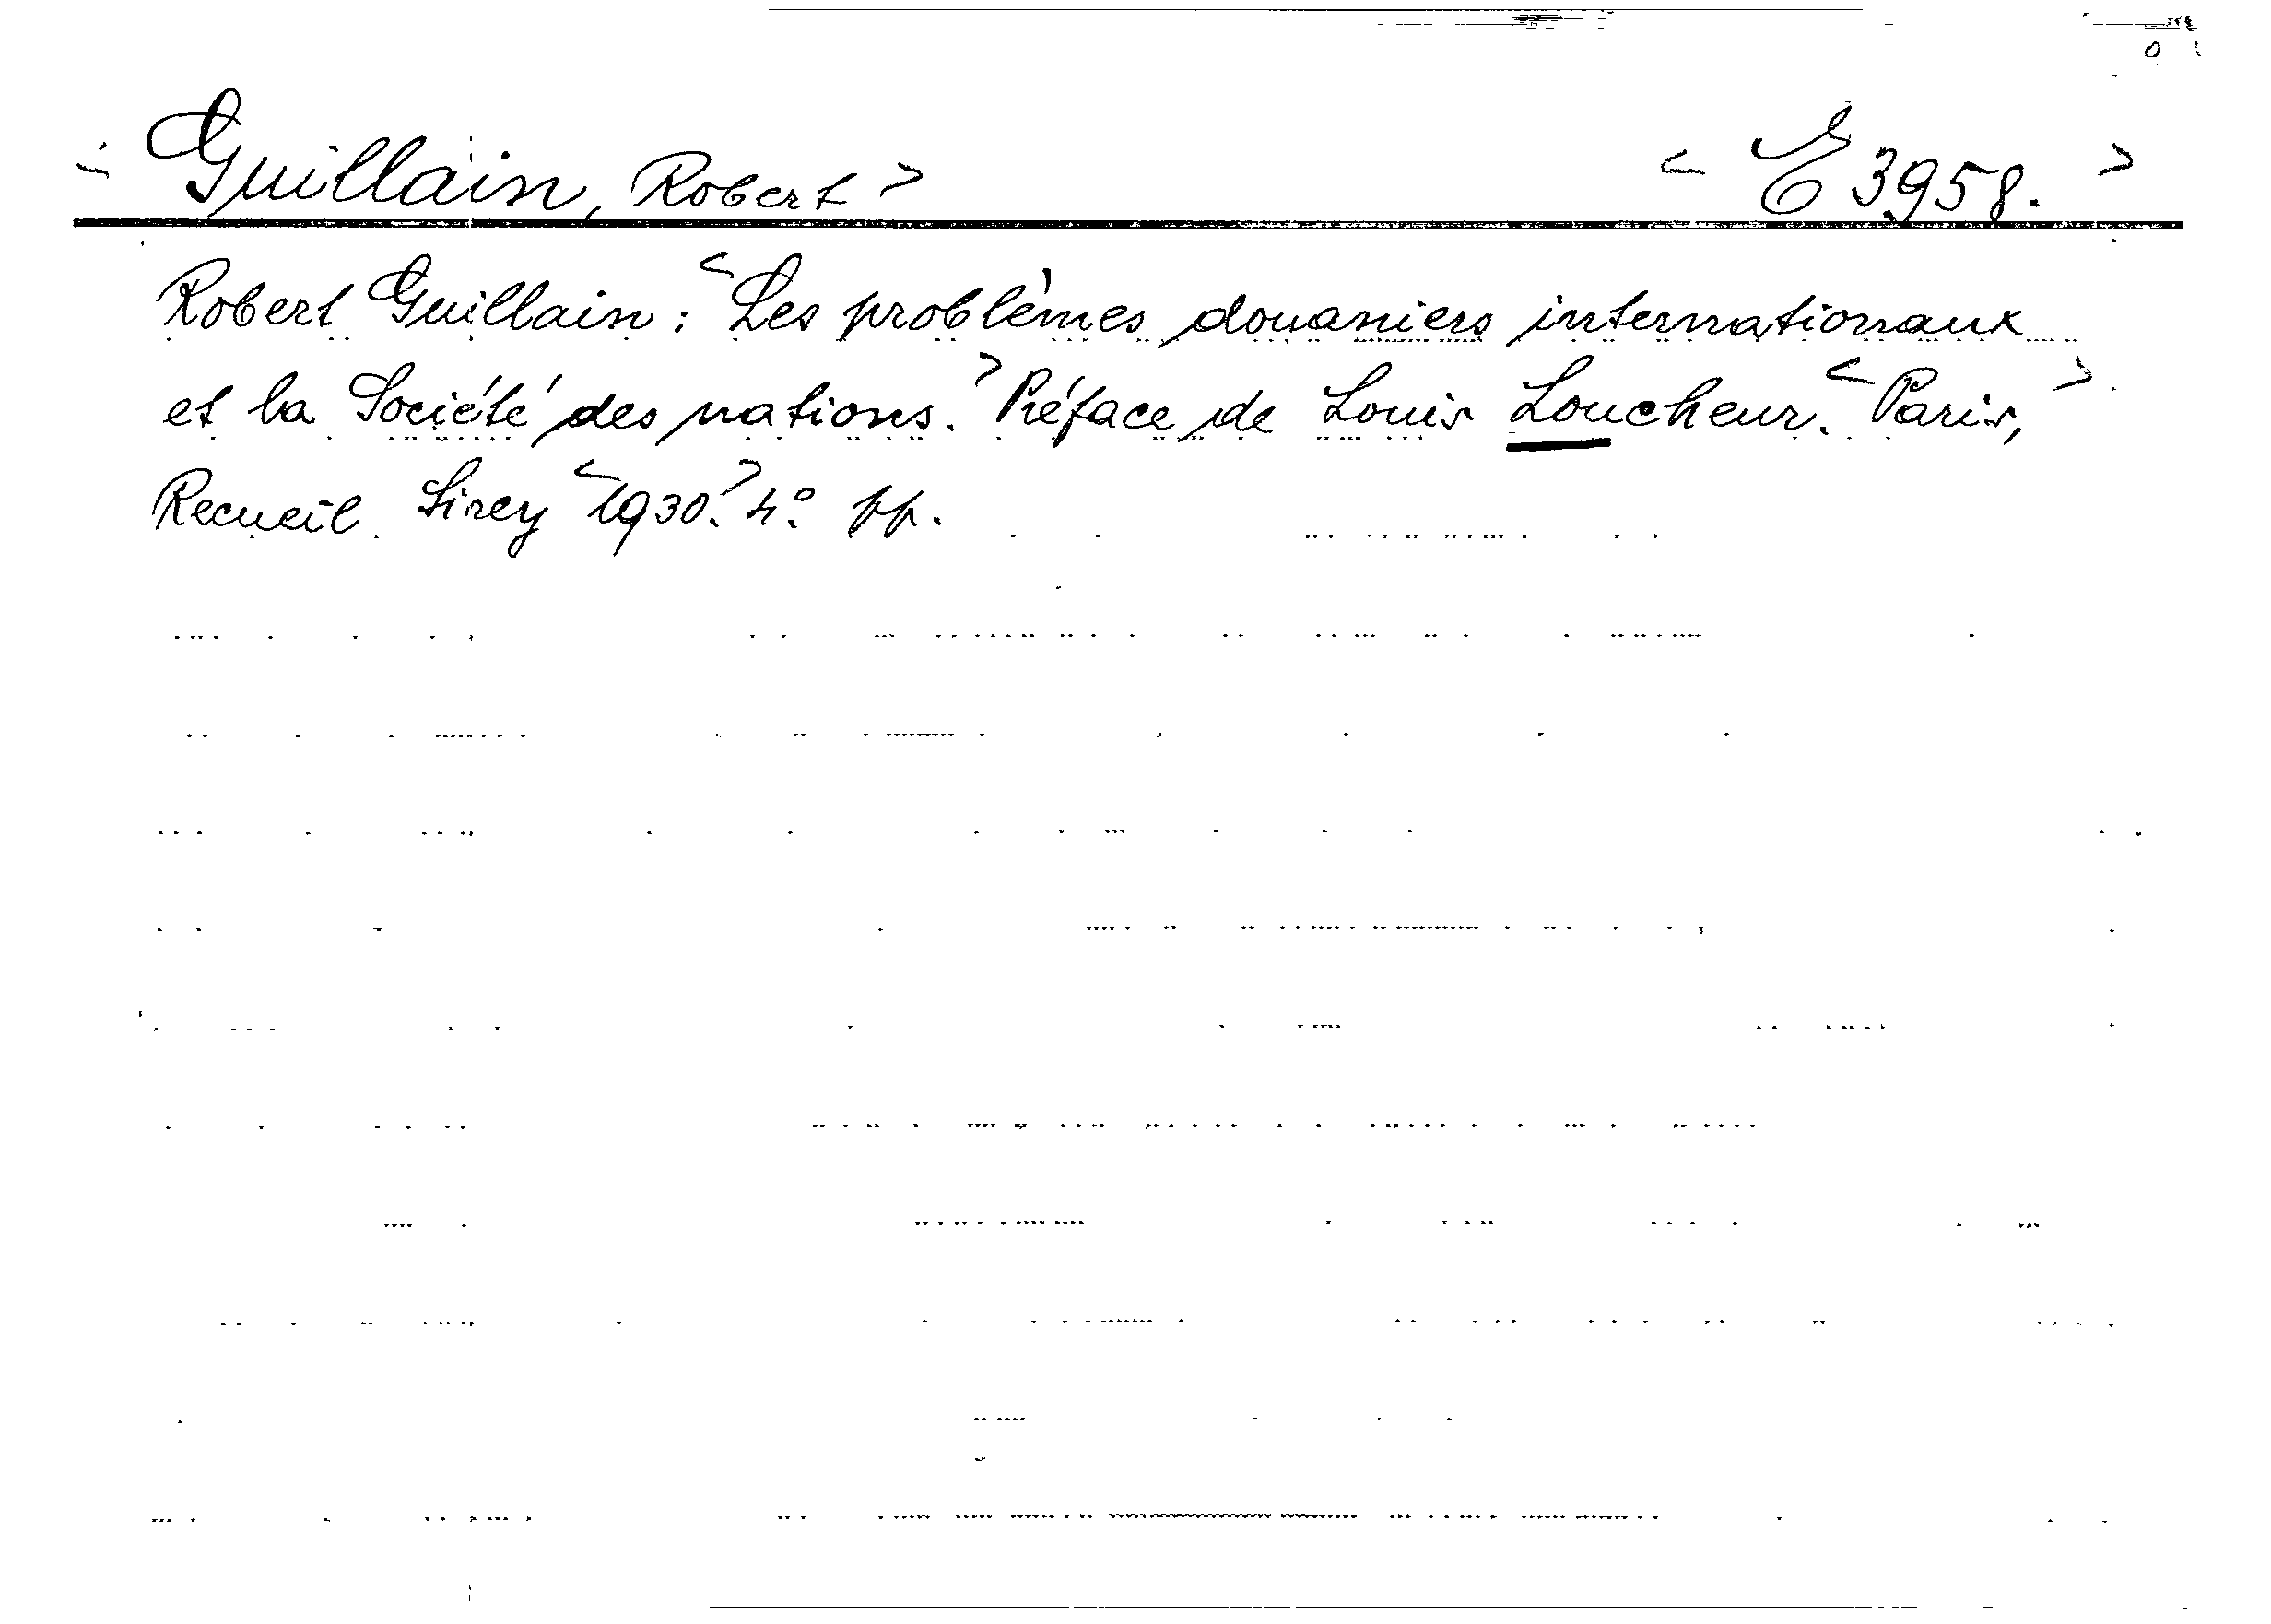 < Guillain, Robert > < E 3958. >
Robert Guillain: < Les problèmes douaniers internationaux
et la Société des nations. > Préface de Louis Loucheur. < Paris, >
Recueil Sirey < 1930. > 4º. pp.